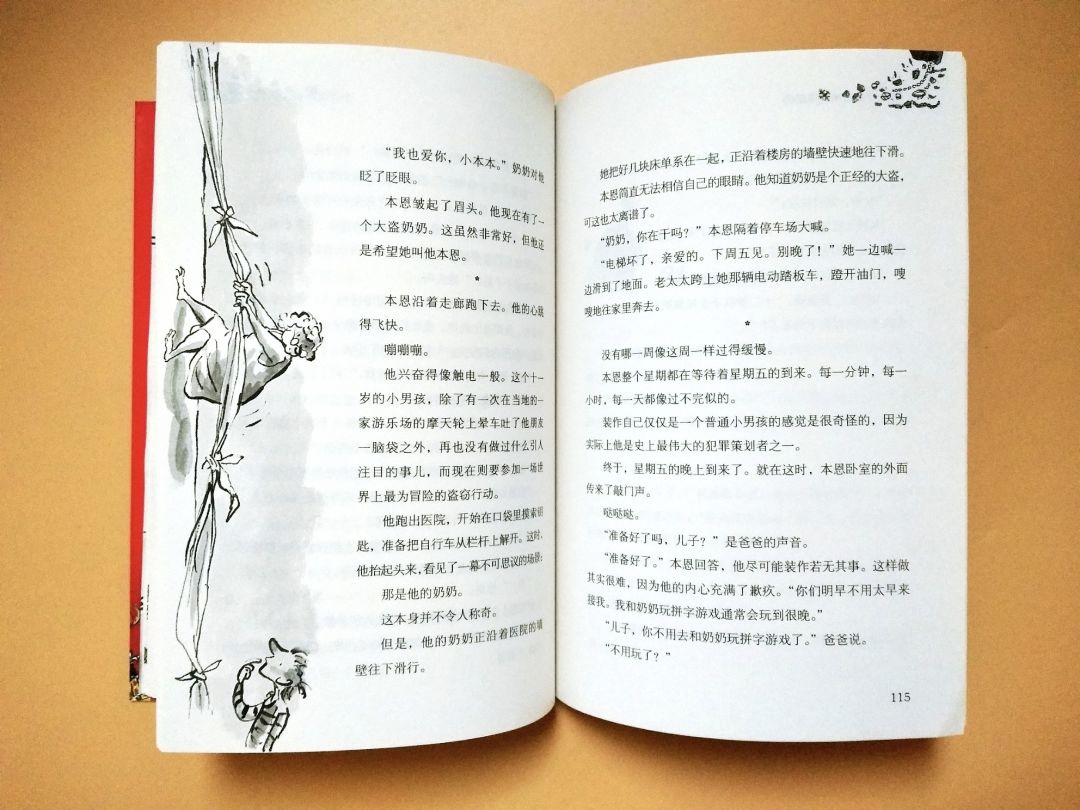 “我也爱你，小本本。”奶奶对他
眨了眨眼。
本恩皱起了眉头。他现在有了一
个大盗奶奶。这虽然非常好，但他还
是希望她叫他本恩。
*
本恩沿着走廊跑下去。他的心跳
得飞快。
嘣嘣嘣。
他兴奋得像触电一般。这个十一
岁的小男孩，除了有一次在当地的一
家游乐场的摩天轮上晕车吐了他朋友
一脑袋之外，再也没有做过什么引人
注目的事儿，而现在则要参加一场世
界上最为冒险的盗窃行动。
他跑出医院，开始在口袋里摸索钥
匙，准备把自行车从栏杆上解开。这时，
他抬起头来，看见了一幕不可思议的场景：
那是他的奶奶。
这本身并不令人称奇。
但是，他的奶奶正沿着医院的墙
壁往下滑行。
她把好几块床单系在一起，正沿着楼房的墙壁快速地往下滑。
本恩简直无法相信自己的眼睛。他知道奶奶是个正经的大盗，
可这也太离谱了。
“奶奶，你在干吗？”本恩隔着停车场大喊。
“电梯坏了，亲爱的。下周五见。别晚了！”她一边喊一
边滑到了地面。老太太跨上她那辆电动踏板车，蹬开油门，嗖
嗖地往家里奔去。
*
没有哪一周像这周一样过得缓慢。
本恩整个星期都在等待着星期五的到来。每一分钟，每一
小时，每一天都像过不完似的。
装作自己仅仅是一个普通小男孩的感觉是很奇怪的，因为
实际上他是史上最伟大的犯罪策划者之一。
终于，星期五的晚上到来了。就在这时，本恩卧室的外面
传来了敲门声。
哒哒哒。
“准备好了吗，儿子？”是爸爸的声音。
“准备好了。”本恩回答，他尽可能装作若无其事。这样做
其实很难，因为他的内心充满了歉疚。“你们明早不用太早来
接我。我和奶奶玩拼字游戏通常会玩到很晚。”
“儿子，你不用去和奶奶玩拼字游戏了。”爸爸说。
“不用玩了？”
115